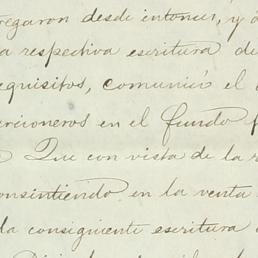 egaron desde entonces, y
a respectiva escritura de
equisitos, comunicó el
rcioneros en el fundo
Que con vista de la
onsintiendo en la venta
la consiguiente escritura